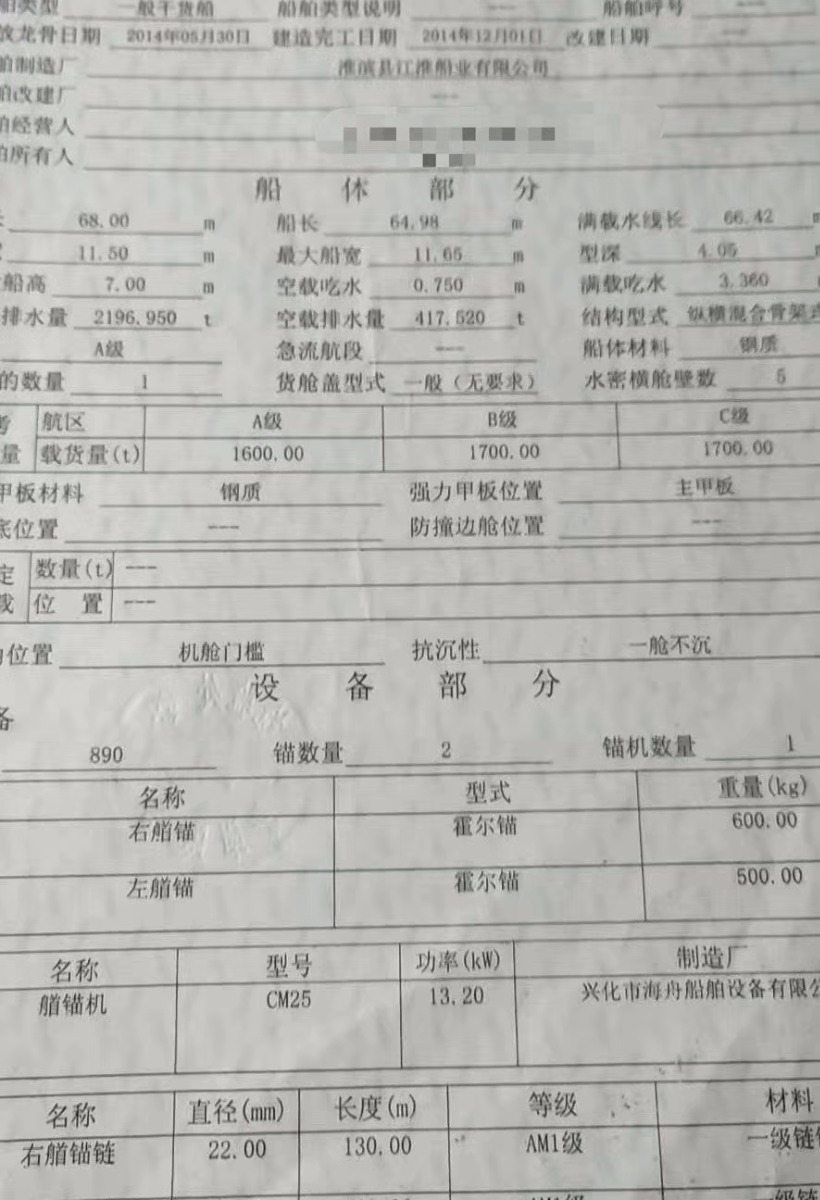 舶类型 一般干货船 船舶类型说明 --- 船舶呼号 ---
放龙骨日期 2014年05月30日 建造完工日期 2014年12月01日 改建日期 ---
舶制造厂 淮滨县江淮船业有限公司
舶改建厂 ---
舶经营人
舶所有人
船 体 部 分
68.00 m 船长 64.98 m 满载水线长 66.42 m
11.50 m 最大船宽 11.65 m 型深 4.05
船高 7.00 m 空载吃水 0.750 m 满载吃水 3.360 m
排水量 2196.950 t 空载排水量 417.520 t 结构型式 纵横混合骨架式
A级 急流航段 --- 船体材料 钢质
的数量 1 货舱盖型式 一般（无要求） 水密横舱壁数 5
航区 A级 B级 C级
量 载货量(t) 1600.00 1700.00 1700.00
甲板材料 钢质 强力甲板位置 主甲板
底位置 --- 防撞边舱位置 ---
定 数量(t) ---
载 位 置 ---
位置 机舱门槛 抗沉性 一舱不沉
设 备 部 分
备
890 锚数量 2 锚机数量 1
名称 型式 重量(kg)
右艏锚 霍尔锚 600.00
左艏锚 霍尔锚 500.00
名称 型号 功率(kW) 制造厂
艏锚机 CM25 13.20 兴化市海舟船舶设备有限公
名称 直径(mm) 长度(m) 等级 材料
右艏锚链 22.00 130.00 AM1级 一级链